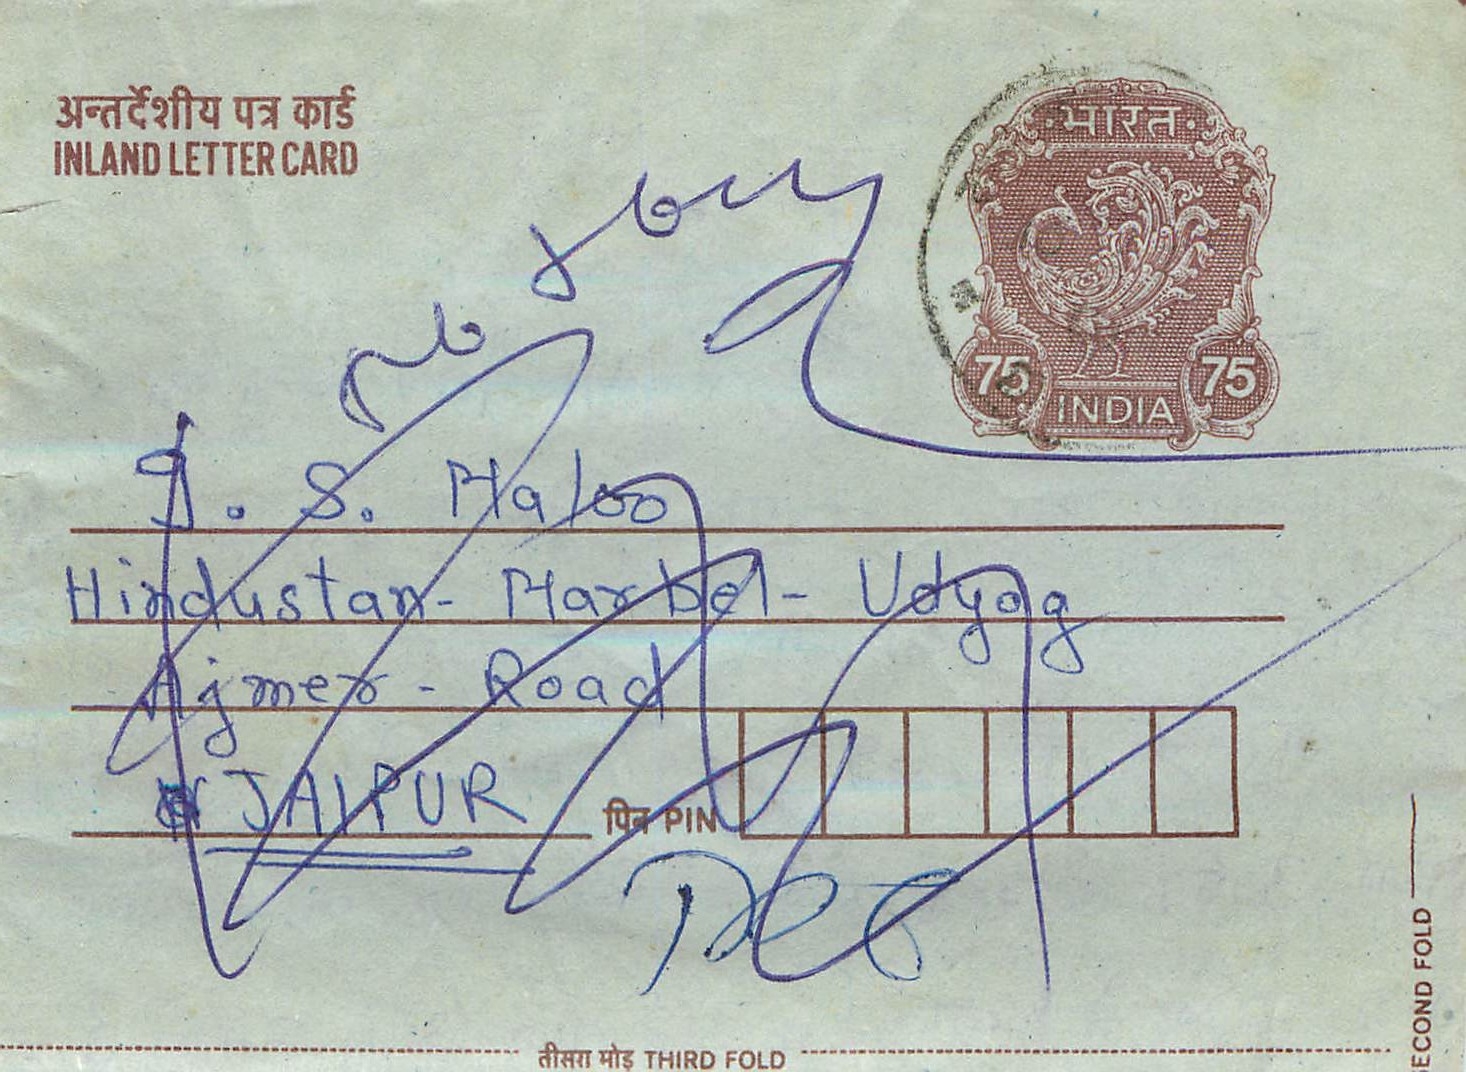 अन्तर्देशीय पत्र कार्ड
INLAND LETTER CARD
भारत
75 75
INDIA
S. Maloo
Hindustan- Marbel- Udyog
Ajmer - Road
JAIPUR
पिन PIN
तीसरा मोड़ THIRD FOLD
SECOND FOLD